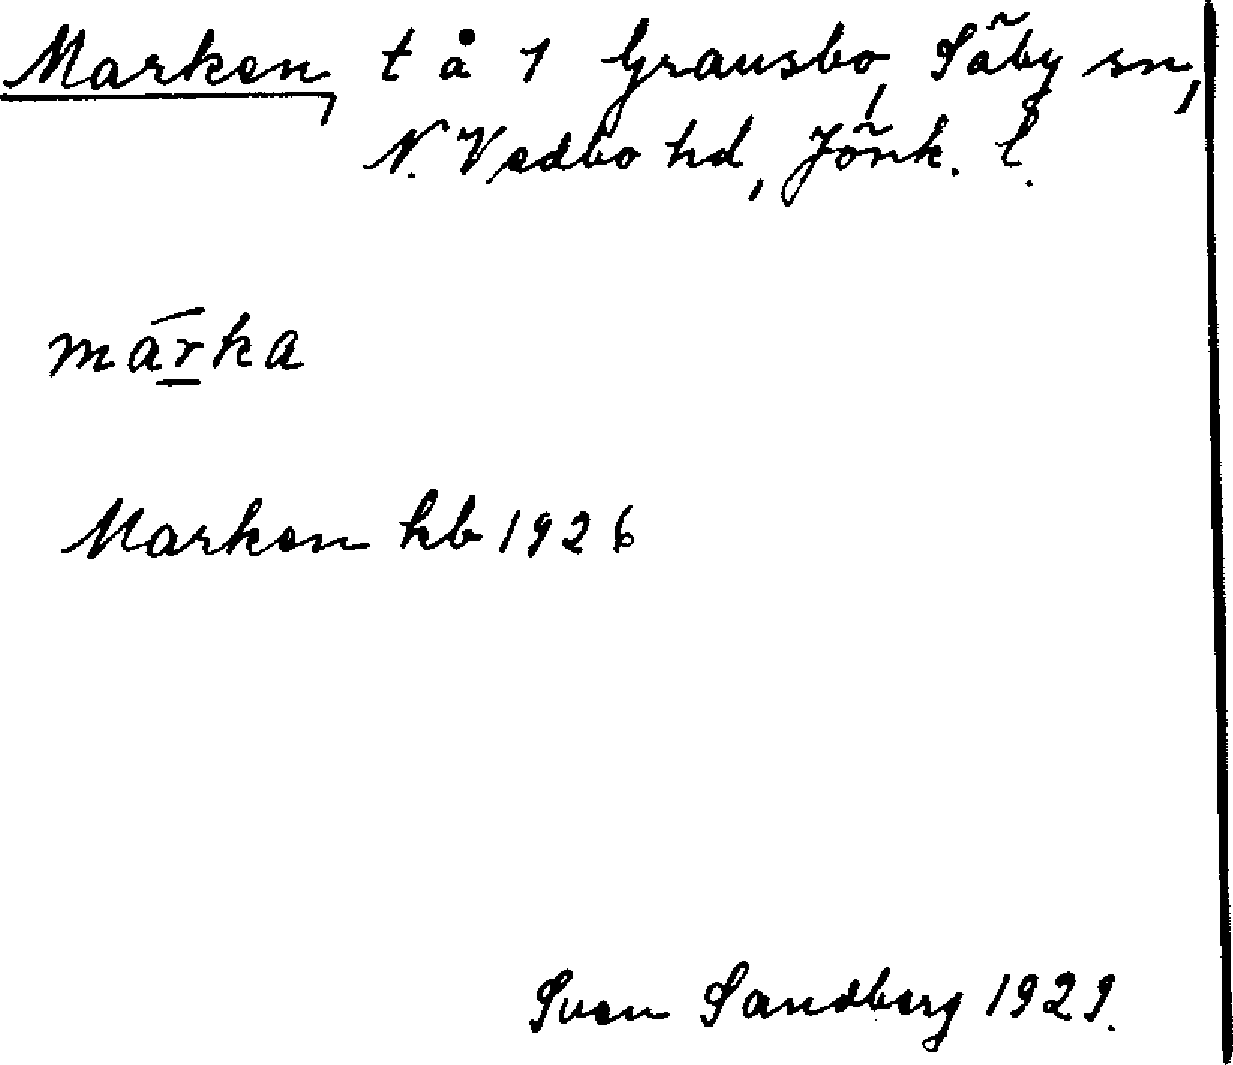 Marken, t å 1 Grausbo, Säby sn,
N. Vedbo hd, Jönk. l.
márka
Marken hb 1926
Sven Sandberg 1929.